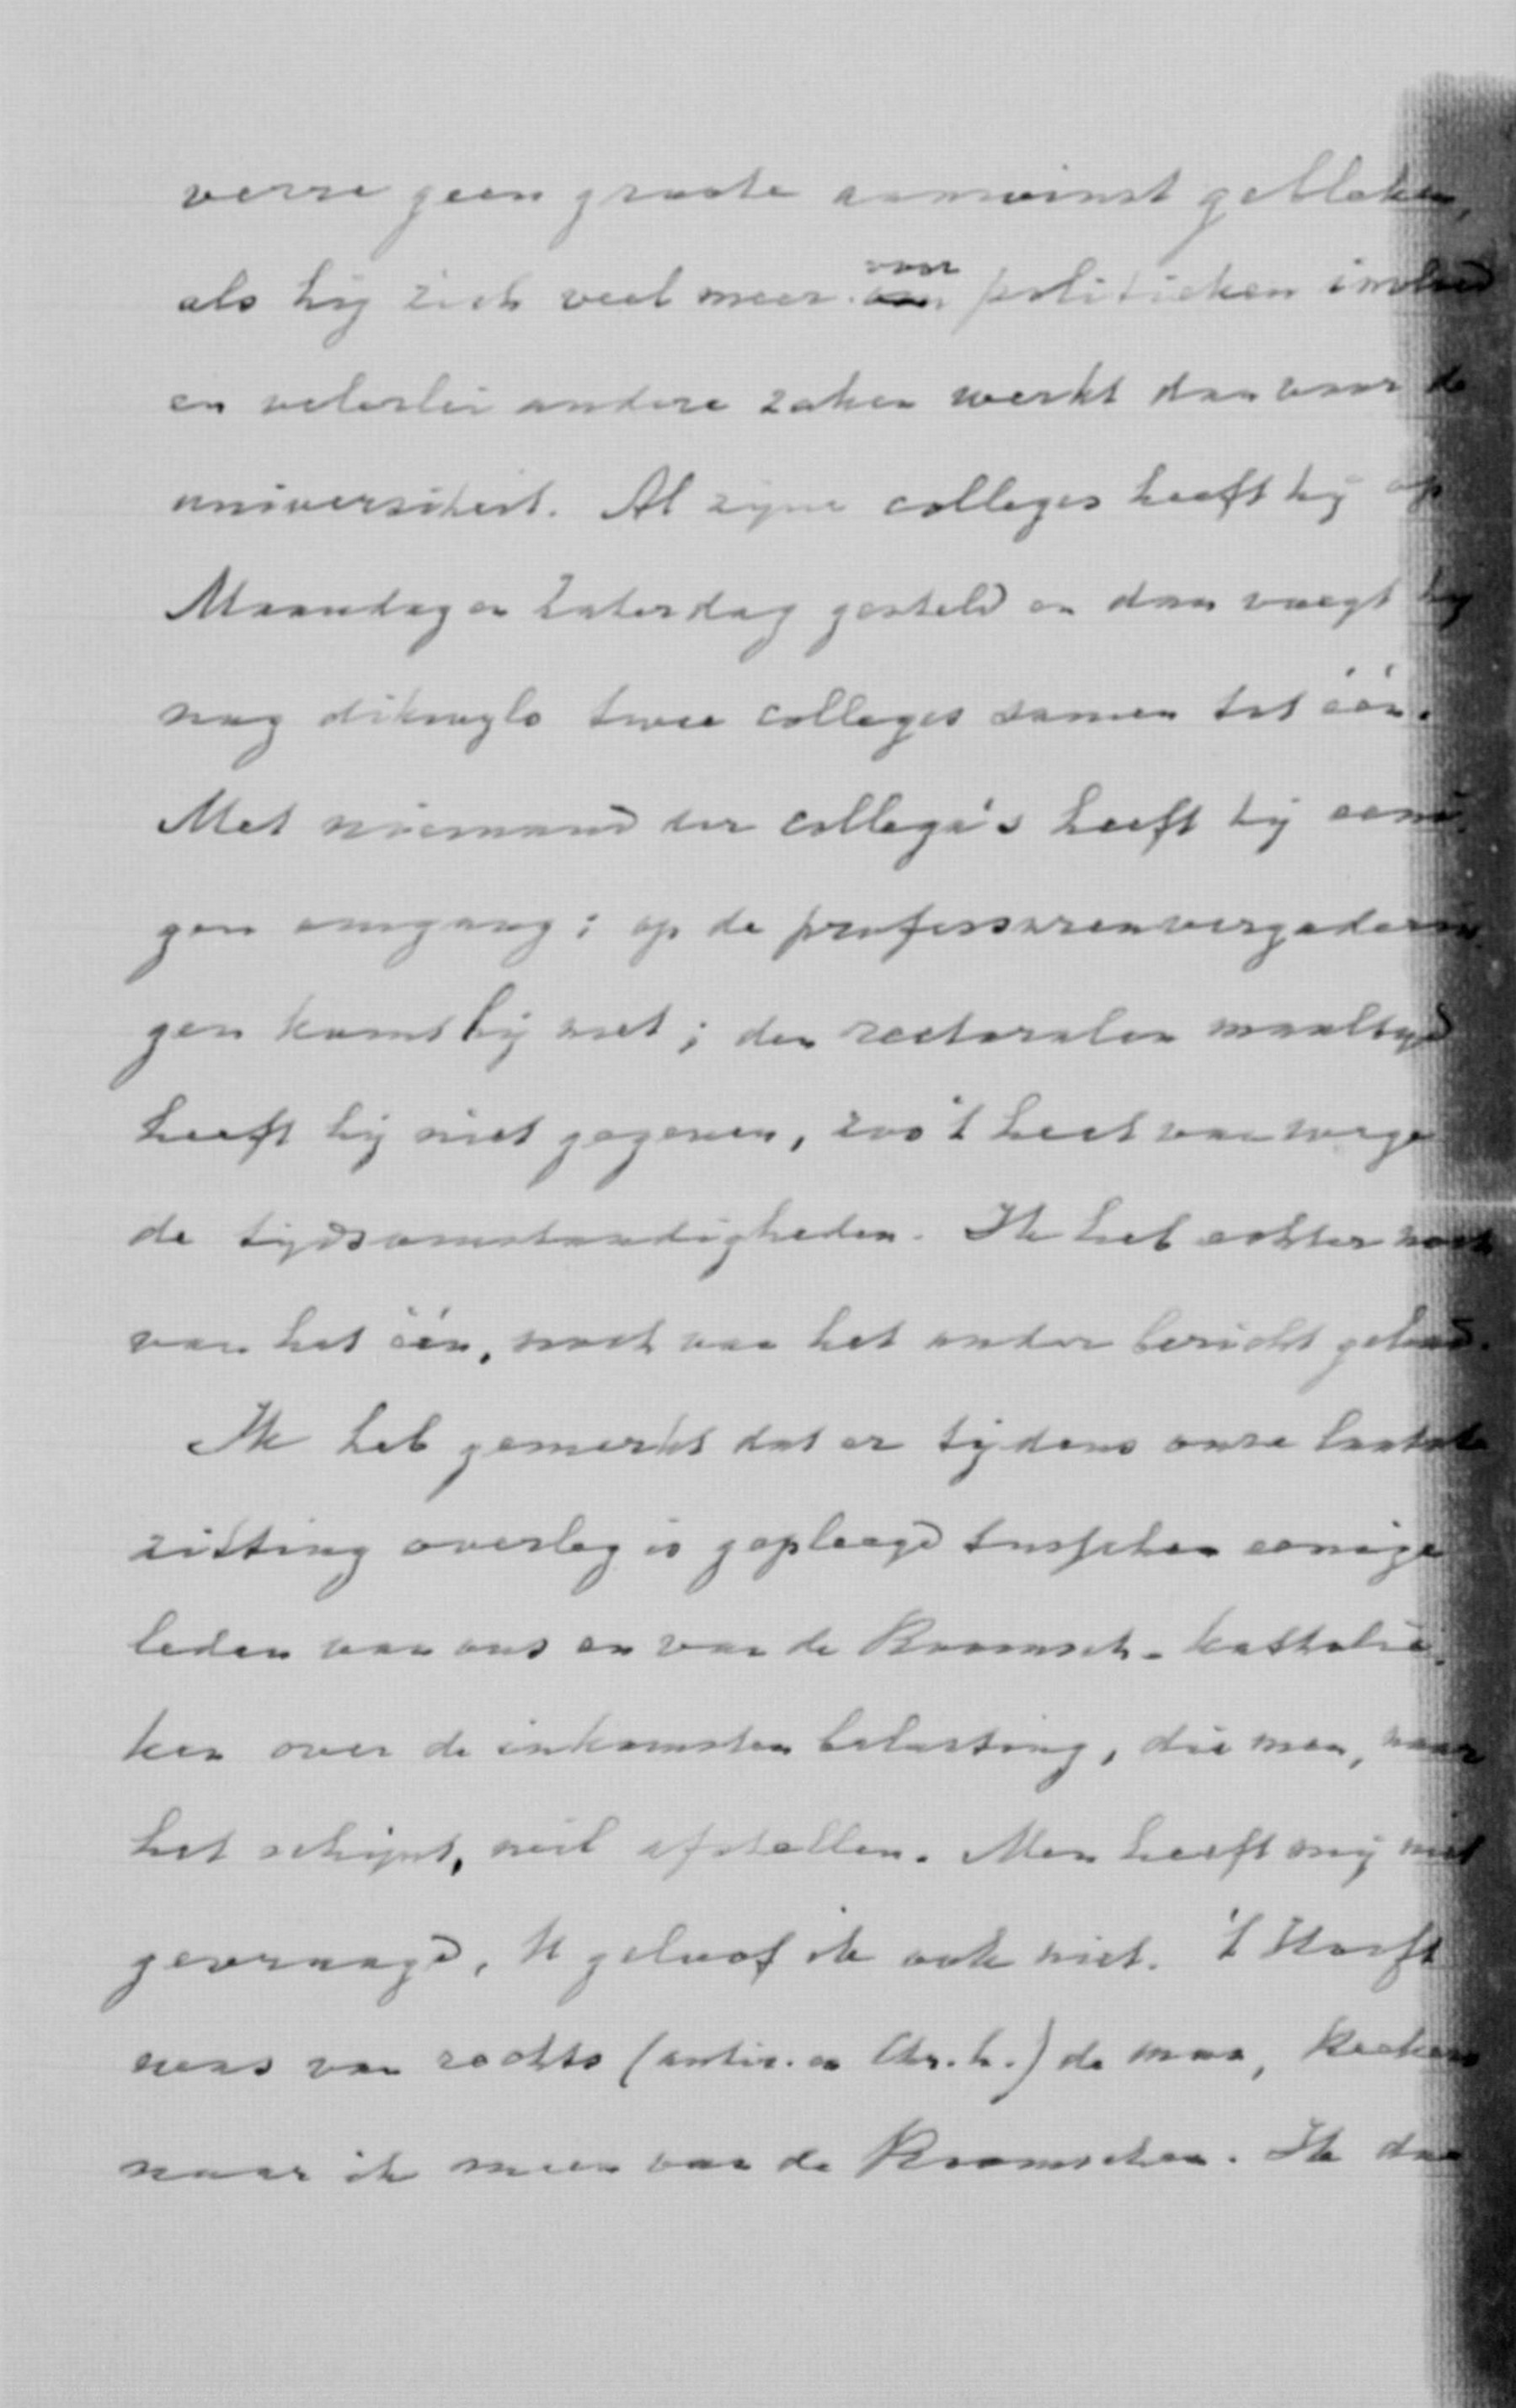 verre geen groote aanwinst gebleken,
als hij zich veel meer voor politieken invloed
en velerlei andere zaken werkt dan voor de
universiteit. Al zijne colleges heeft hij op
Maandag en Zaterdag gesteld en dan voegt hij
nog dikwijls twee colleges samen tot één.
Met niemand der collega's heeft hij eeni-
gen omgang; op de professorenvergaderin-
gen komt hij niet; den rectoralen maaltijd
heeft hij niet gegeven, zoo 't heet van wege
de tijdsomstandigheden. Ik heb echter noch
van het één, noch van het ander bericht gehad.
Ik heb gemerkt dat er tijdens onze laatste
zitting overleg is gepleegd tusschen eenige
leden van ons en van de Roomsch-katholie-
ken over de inkomstenbelasting, die men, naar
het schijnt, wil afstellen. Men heeft mij niet
gevraagd, U geloof ik ook niet. 't Hooft
was van rechts (antir. en Chr. h.) de man,
naar ik meen van de Roomschen. Ik dan